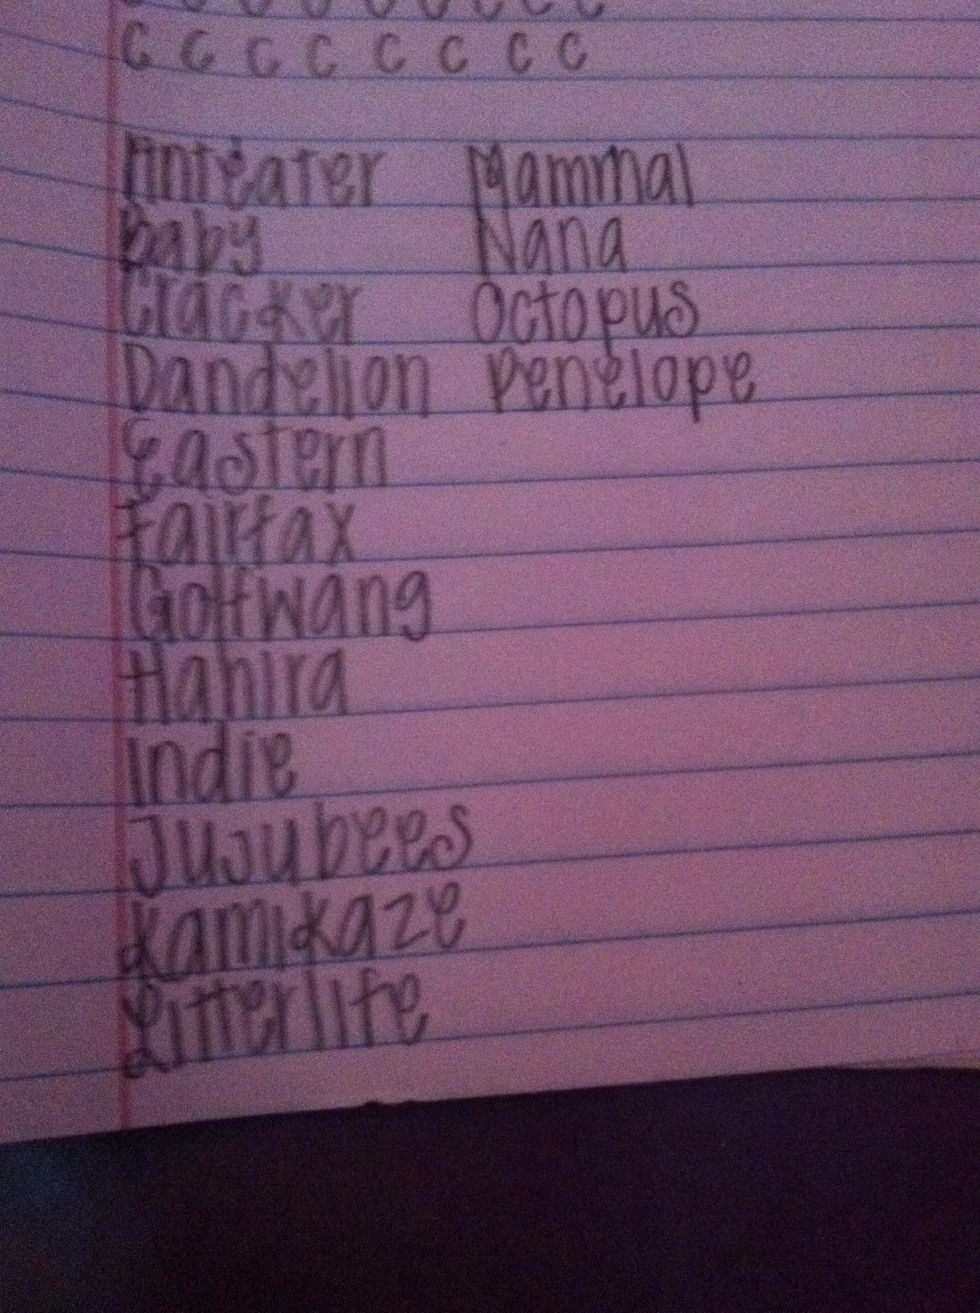 c c c c c c c c
Anteater Mammal
Baby Nana
Cracker Octopus
Dandelion Penelope
Eastern
Fairfax
Golfwang
Hahira
Indie
Jujubees
Kamikaze
Litterlife